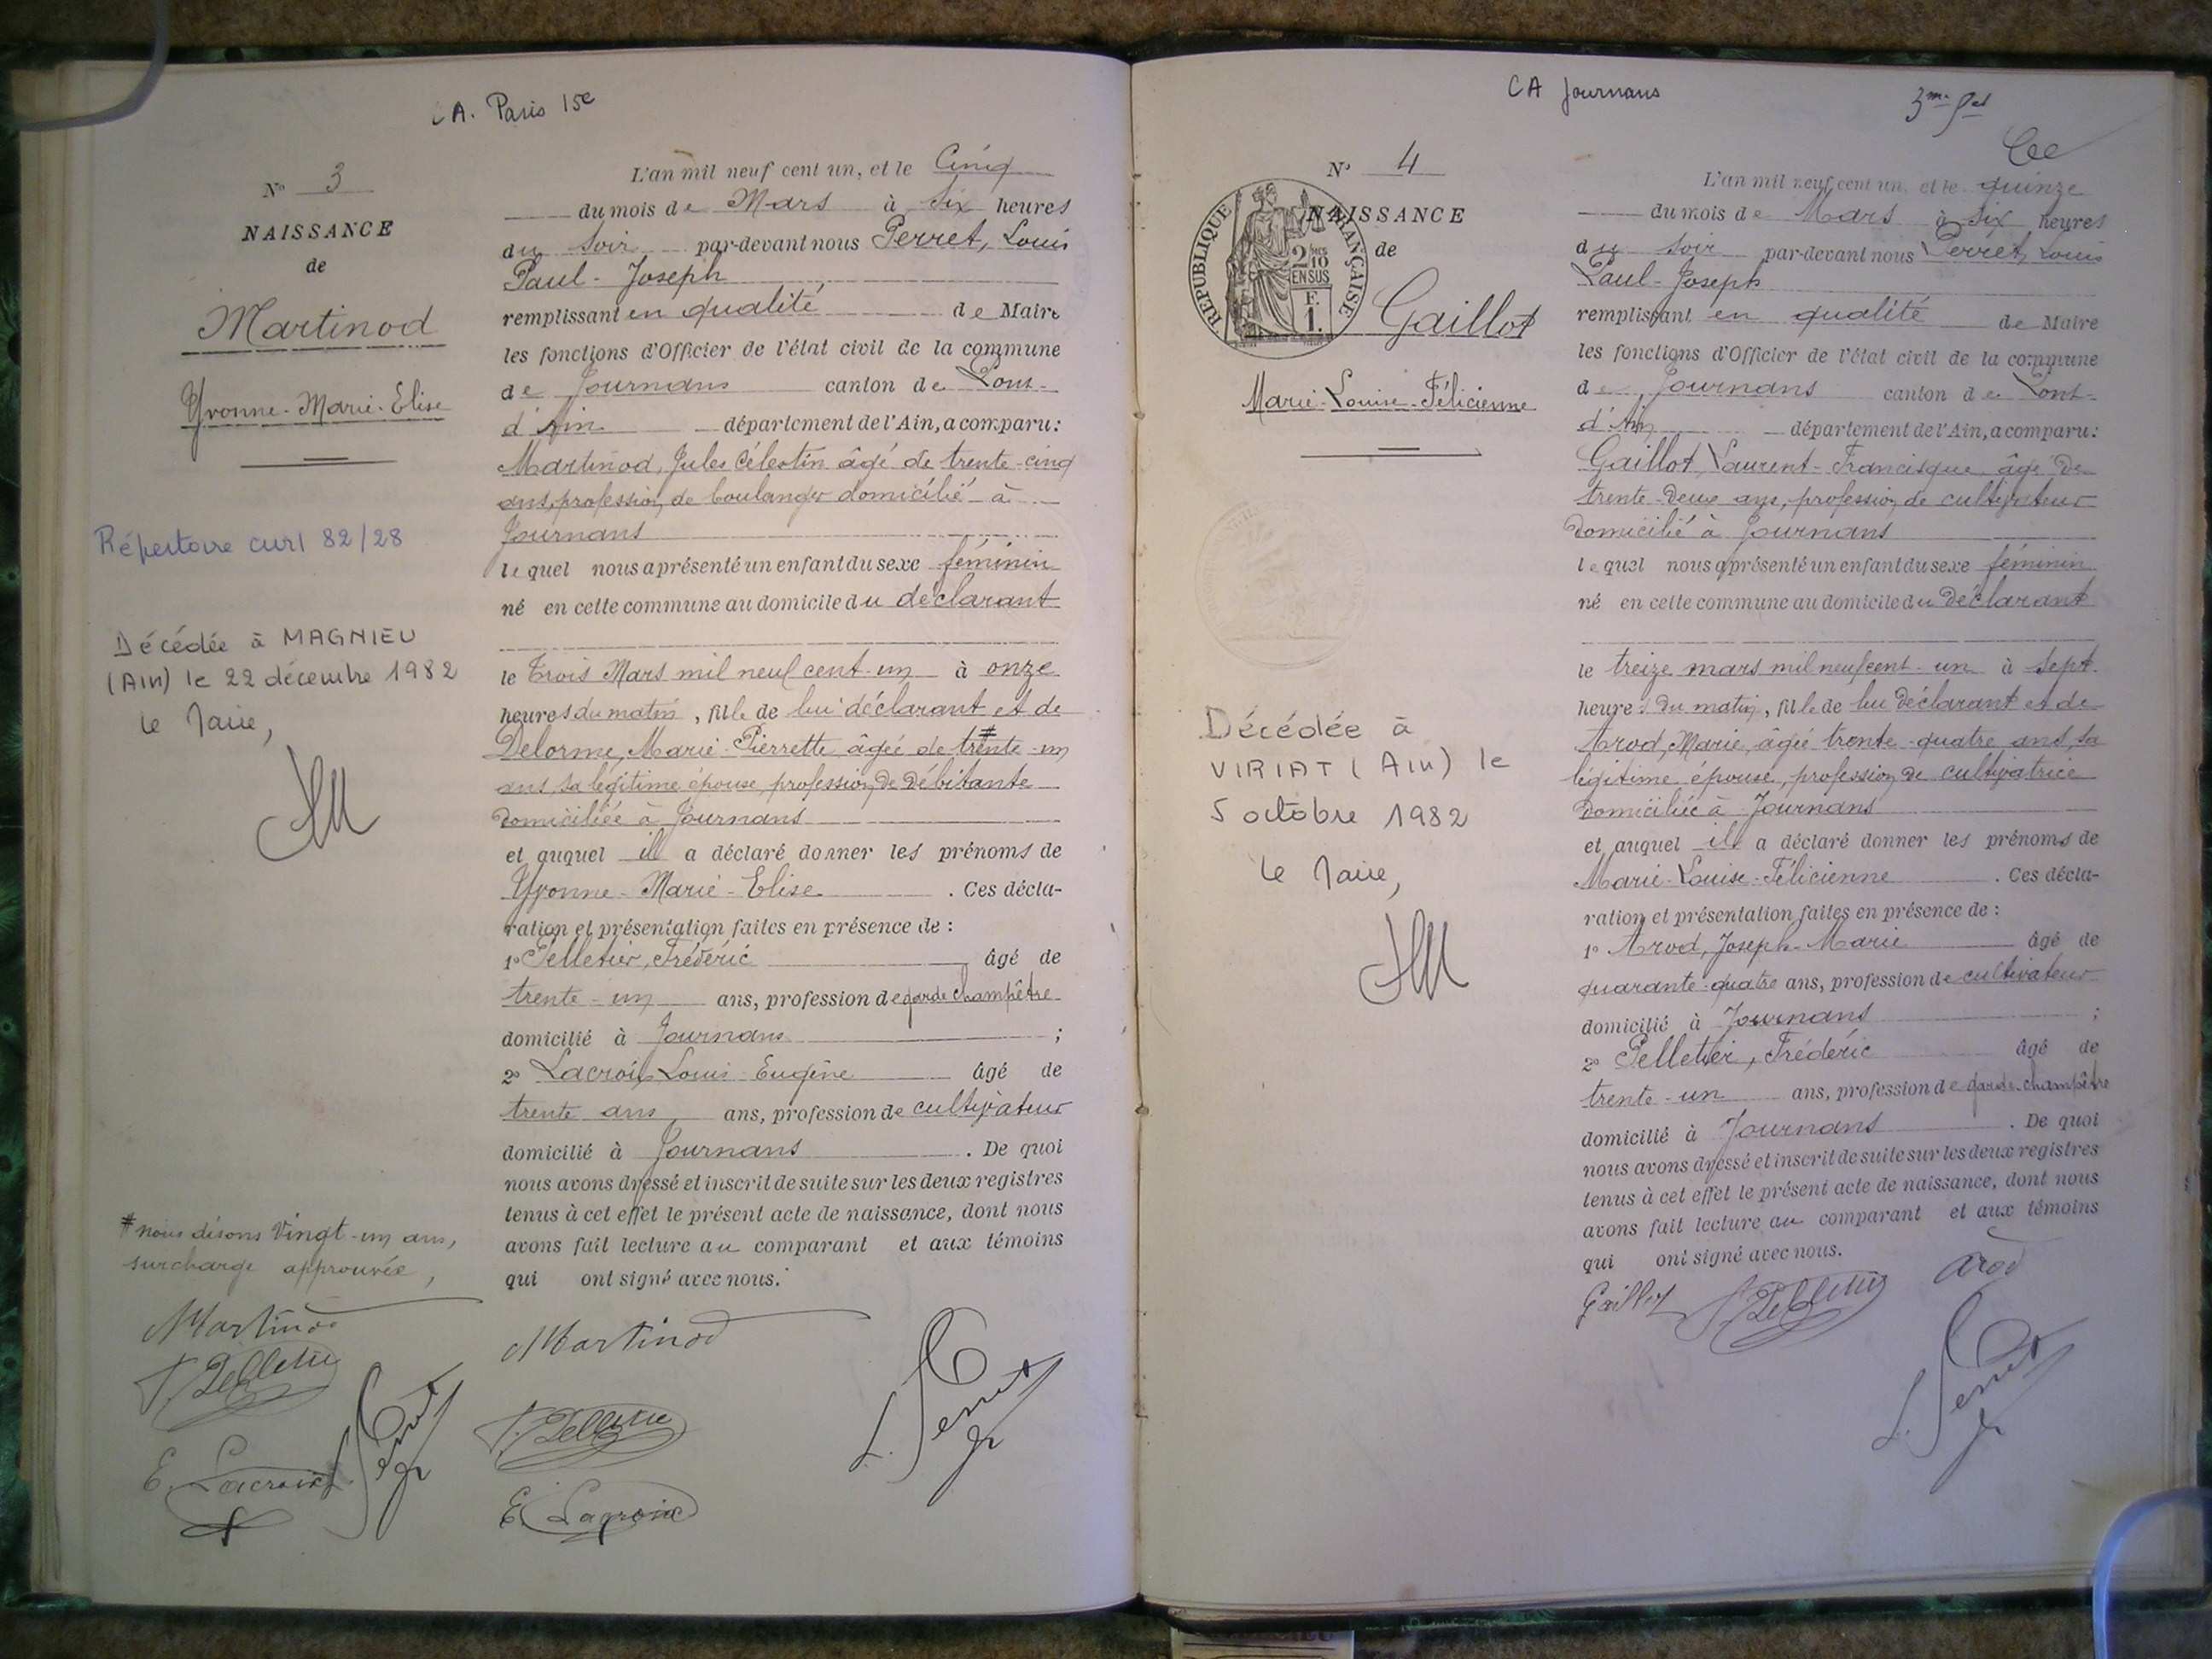 CA. Paris 15e
N° 3
NAISSANCE
de
Martinod
Yvonne-Marie-Elise
Répertoire civil 82/28
Décédée à MAGNIEU
(AIN) le 22 décembre 1982
Le Maire,
# nous disons vingt-un ans,
surcharge approuvée,
Martinod
F. Pelletier
E. Lacroix
L. Perret
L'an mil neuf cent un, et le Cinq
du mois de Mars à six heures
du soir par-devant nous Perret, Louis
Paul-Joseph
remplissant en qualité de Maire
les fonctions d'Officier de l'état civil de la commune
de Journans canton de Pont-
d'Ain département de l'Ain, a comparu:
Martinod, Jules Célestin âgé de trente-cinq
ans, profession de boulanger domicilié à
Journans
lequel nous a présenté un enfant du sexe féminin
né en cette commune au domicile du déclarant
le Trois Mars mil neuf cent un à onze
heures du matin, fille de lui déclarant et de
Delorme, Marie-Pierrette âgée de trente-un #
ans, sa légitime épouse profession de débitante
domiciliée à Journans
et auquel il a déclaré donner les prénoms de
Yvonne-Marie-Elise. Ces décla-
ration et présentation faites en présence de :
1° Pelletier, Frédéric âgé de
trente-un ans, profession de garde champêtre
domicilié à Journans ;
2° Lacroix, Louis-Eugène âgé de
trente ans ans, profession de cultivateur
domicilié à Journans. De quoi
nous avons dressé et inscrit de suite sur les deux registres
tenus à cet effet le présent acte de naissance, dont nous
avons fait lecture au comparant et aux témoins
qui ont signé avec nous.
Martinod
F. Pelletier
E. Lacroix
L. Perret
CA Journans
N° 4
NAISSANCE
de
RÉPUBLIQUE FRANÇAISE
2/10
EN SUS
F.
1.
Gaillot
Marie-Louise-Félicienne
Décédée à
VIRIAT (Ain) le
5 octobre 1982
Le Maire,
L'an mil neuf cent un, et le quinze
du mois de Mars à six heures
du soir par-devant nous Perret, Louis
Paul-Joseph
remplissant en qualité de Maire
les fonctions d'Officier de l'état civil de la commune
de Journans canton de Pont-
d'Ain département de l'Ain, a comparu:
Gaillot, Laurent-Francisque âgé de
trente-deux ans, profession de cultivateur
domicilié à Journans
lequel nous a présenté un enfant du sexe féminin
né en cette commune au domicile du déclarant
le treize mars mil neuf cent-un à sept
heures du matin, fille de lui déclarant et de
Arod, Marie, âgée trente-quatre ans, sa
légitime épouse, profession de cultivatrice
domiciliée à Journans
et auquel il a déclaré donner les prénoms de
Marie-Louise-Félicienne. Ces décla-
ration et présentation faites en présence de :
1° Arod, Joseph-Marie âgé de
quarante-quatre ans, profession de cultivateur
domicilié à Journans ;
2° Pelletier, Frédéric âgé de
trente-un ans, profession de garde-champêtre
domicilié à Journans. De quoi
nous avons dressé et inscrit de suite sur les deux registres
tenus à cet effet le présent acte de naissance, dont nous
avons fait lecture au comparant et aux témoins
qui ont signé avec nous.
Gaillot F. Pelletier Arod
L. Perret